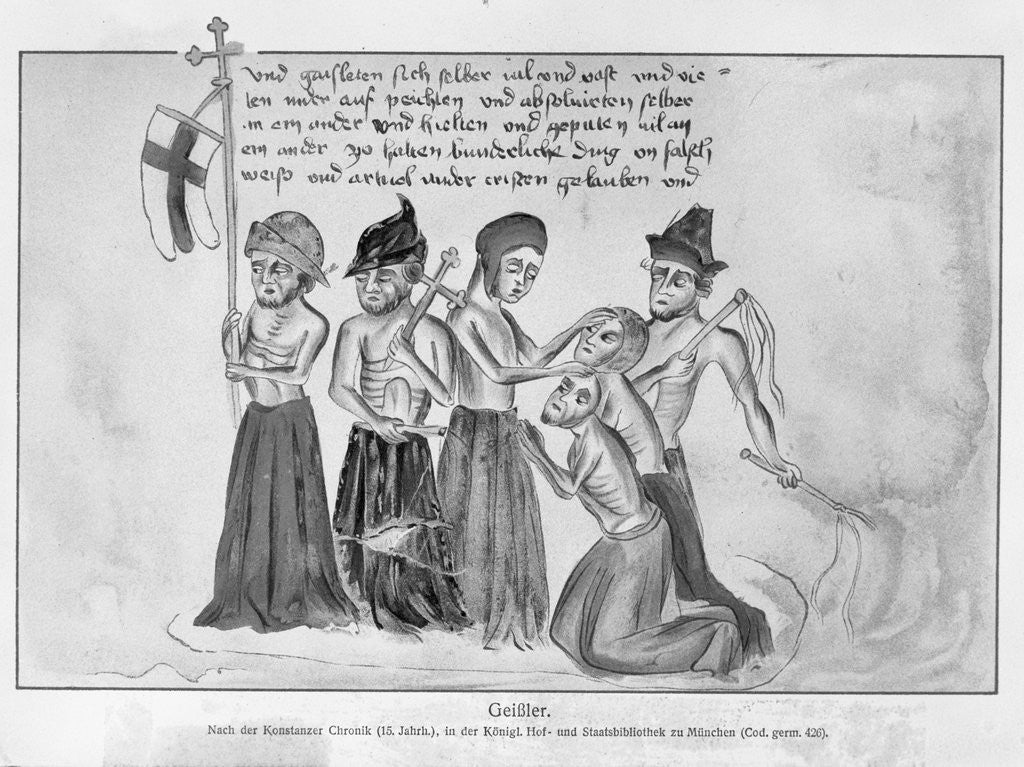 und gaisleten sich selber und vast und vie =
len nider auf peichten und absoluirten selber
an ein ander und hielten und geputen vil an
ein ander yo hatten bunderliche ding in falsch
weiss und artucol wider cristen gelauben und
Geißler.
Nach der Konstanzer Chronik (15. Jahrh.), in der Königl. Hof- und Staatsbibliothek zu München (Cod. germ. 426).